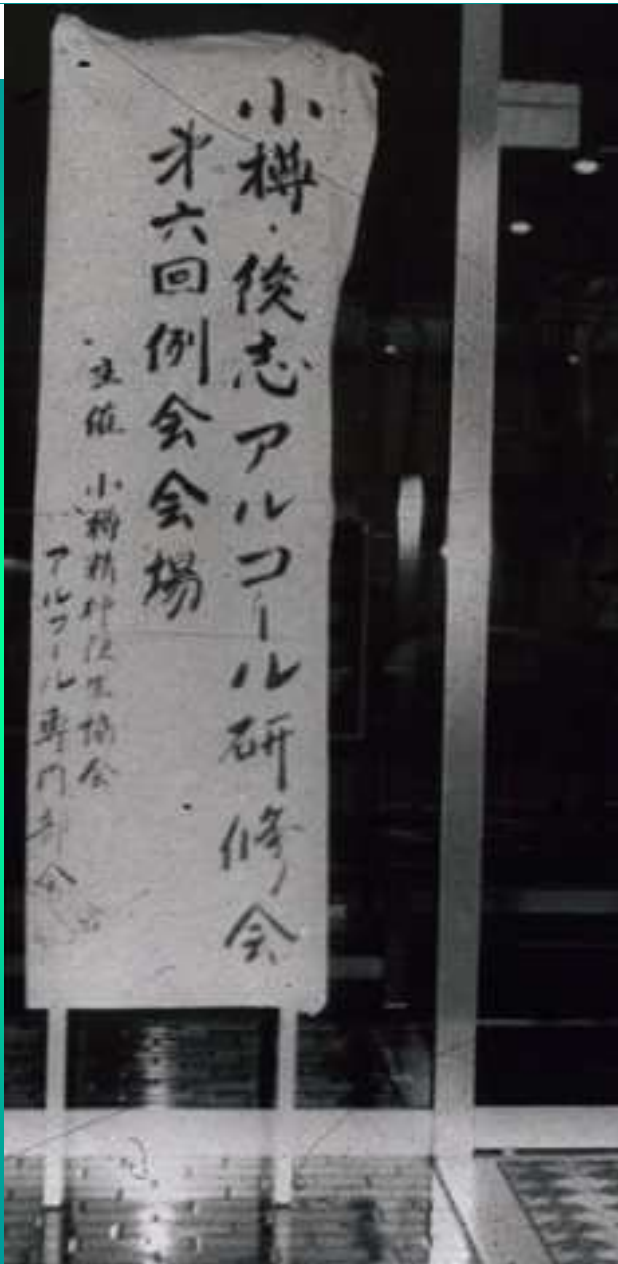 小樽・後志アルコール研修会
第六回例会会場
主催 小樽精神衛生協会
アルコール専門部会